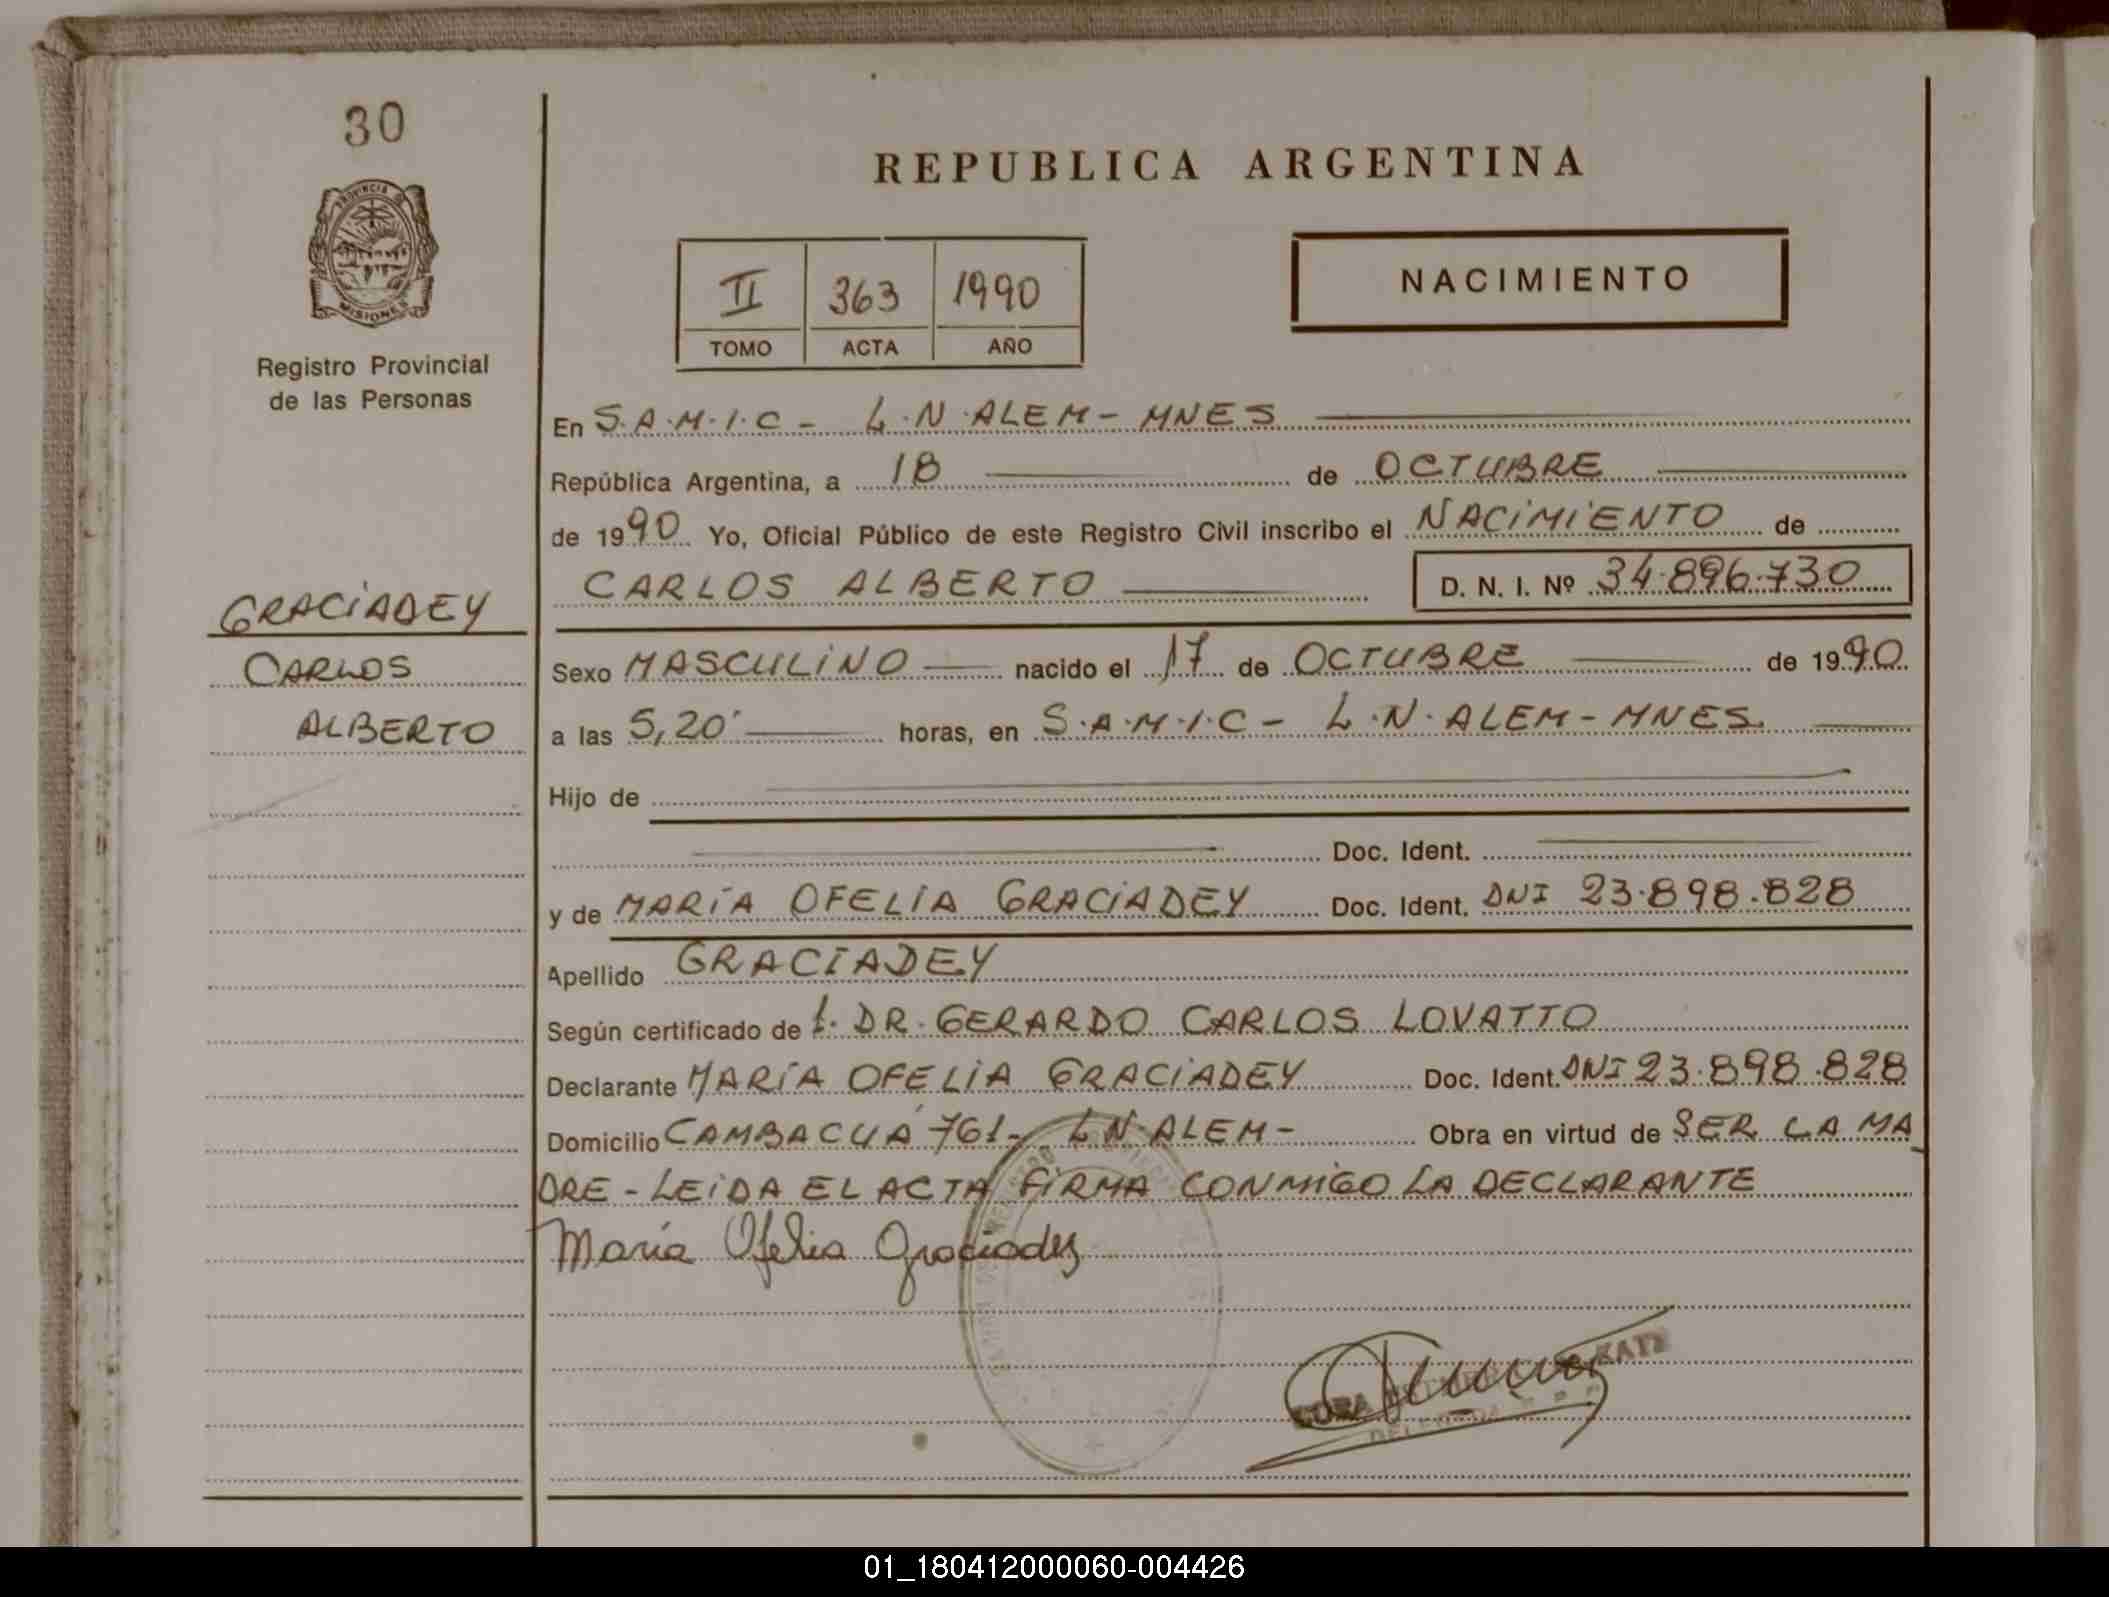 30
PROVINCIA DE
MISIONES
Registro Provincial
de las Personas
GRACIADEY
CARLOS
ALBERTO
REPUBLICA ARGENTINA
II 363 1990
TOMO ACTA AÑO
NACIMIENTO
En S.A.M.I.C - L.N.ALEM - MNES
República Argentina, a 18 de OCTUBRE
de 1990 Yo, Oficial Público de este Registro Civil inscribo el NACIMIENTO de
CARLOS ALBERTO D. N. I. Nº 34.896.730
Sexo MASCULINO nacido el 17 de OCTUBRE de 1990
a las 5,20 horas, en S.A.M.I.C - L.N.ALEM - MNES.
Hijo de
Doc. Ident.
y de MARÍA OFELIA GRACIADEY Doc. Ident. DNI 23.898.828
Apellido GRACIADEY
Según certificado de f. DR. GERARDO CARLOS LOVATTO
Declarante MARÍA OFELIA GRACIADEY Doc. Ident. DNI 23.898.828
Domicilio CAMBACUÁ 761- LN ALEM - Obra en virtud de SER LA MA
DRE - LEIDA EL ACTA FIRMA CONMIGO LA DECLARANTE
María Ofelia Graciadey
01_180412000060-004426